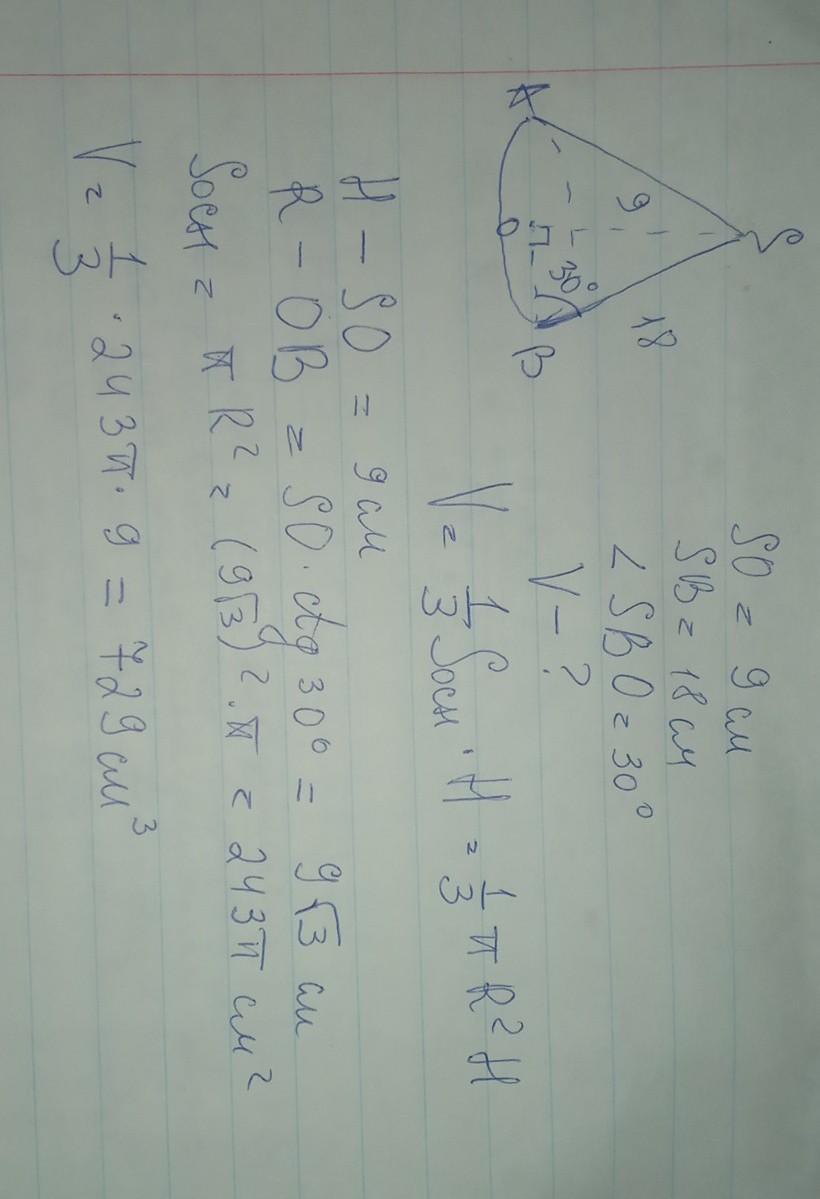 S
9
18
30°
A
O
B
SO = 9 см
SB = 18 см
∠SBO = 30°
V - ?
V = 1/3 Sосн · H = 1/3 π R² H
H - SO = 9 см
R - OB = SO · ctg 30° = 9√3 см
Sосн = π R² = (9√3)² · π = 243π см²
V = 1/3 · 243π · 9 = 729 см³